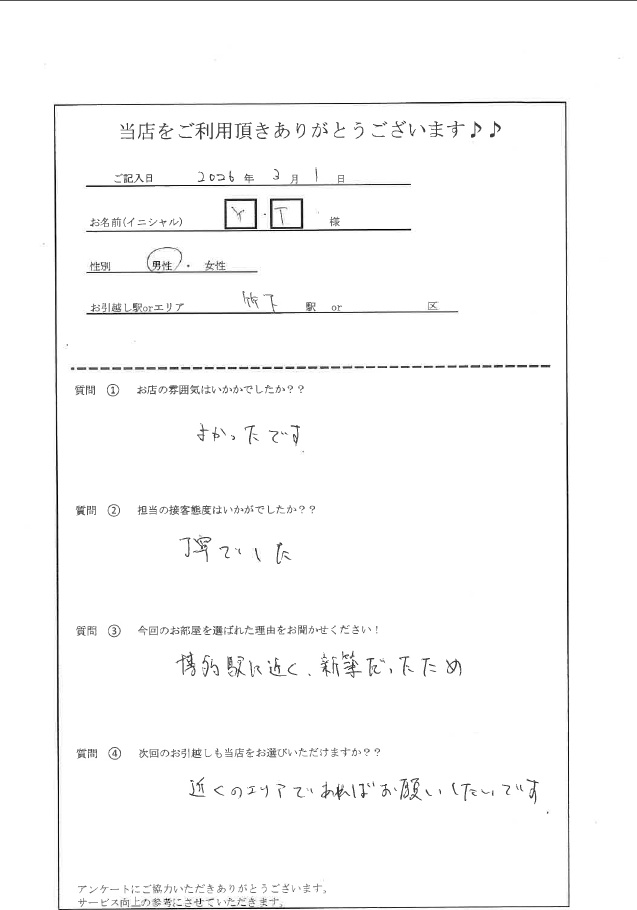 当店をご利用頂きありがとうございます♪♪
ご記入日 2026 年 3 月 1 日
お名前(イニシャル) Y ・ T 様
性別 男性 ・ 女性
お引越し駅orエリア 竹下 駅 or 区
質問 ① お店の雰囲気はいかかでしたか？？
よかったです
質問 ② 担当の接客態度はいかがでしたか？？
丁寧でした
質問 ③ 今回のお部屋を選ばれた理由をお聞かせください！
博多駅に近く、新築だったため
質問 ④ 次回のお引越しも当店をお選びいただけますか？？
近くのエリアであればお願いしたいです.
アンケートにご協力いただきありがとうございます。
サービス向上の参考にさせていただきます。